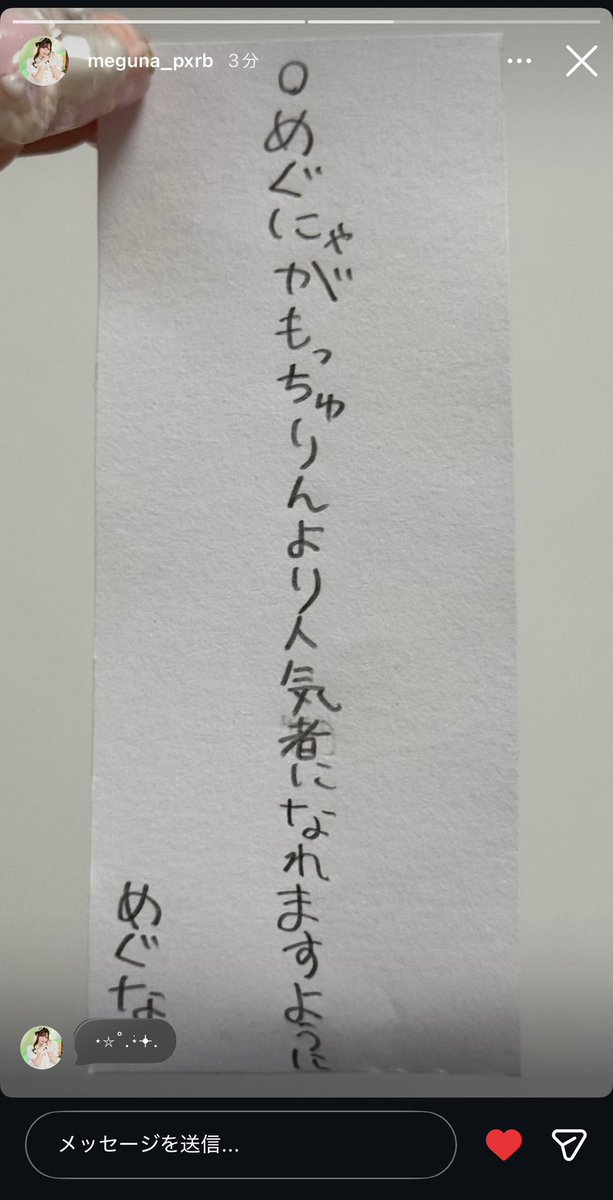 meguna_pxrb 3分
○めぐにゃがもっちゅりんより人気者になれますように
めぐな
メッセージを送信...